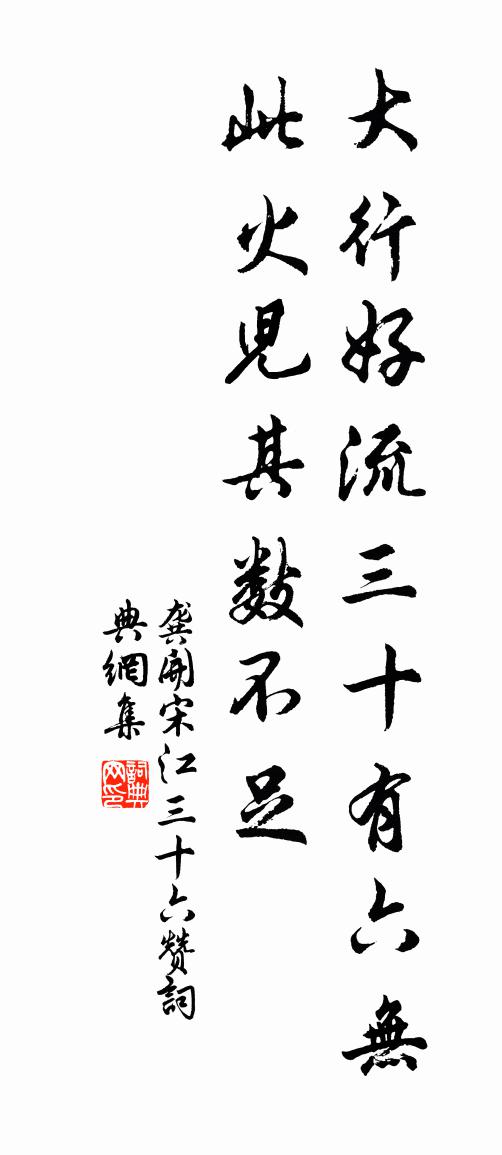 大行好流三十有六無
此火児其数不足
龔開宋江三十六赞詞
典網集
詞典
网印